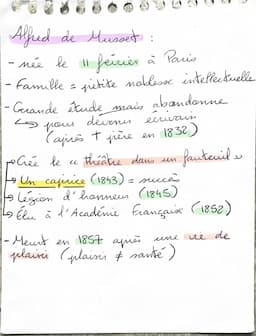 Alfred de Musset :
- née le 11 février à Paris
- Famille = petite noblesse intellectuelle
- Grande étude mais abandonne
↳ pour devenir écrivain
(après † père en 1832)
→ Crée le « théâtre dans un fauteuil »
→ Un caprice (1843) = succès
→ Légion d'honneur (1845)
→ Élu à l'Académie Française (1852)
- Meurt en 1857 après une vie de
plaisir (plaisir ≠ santé)